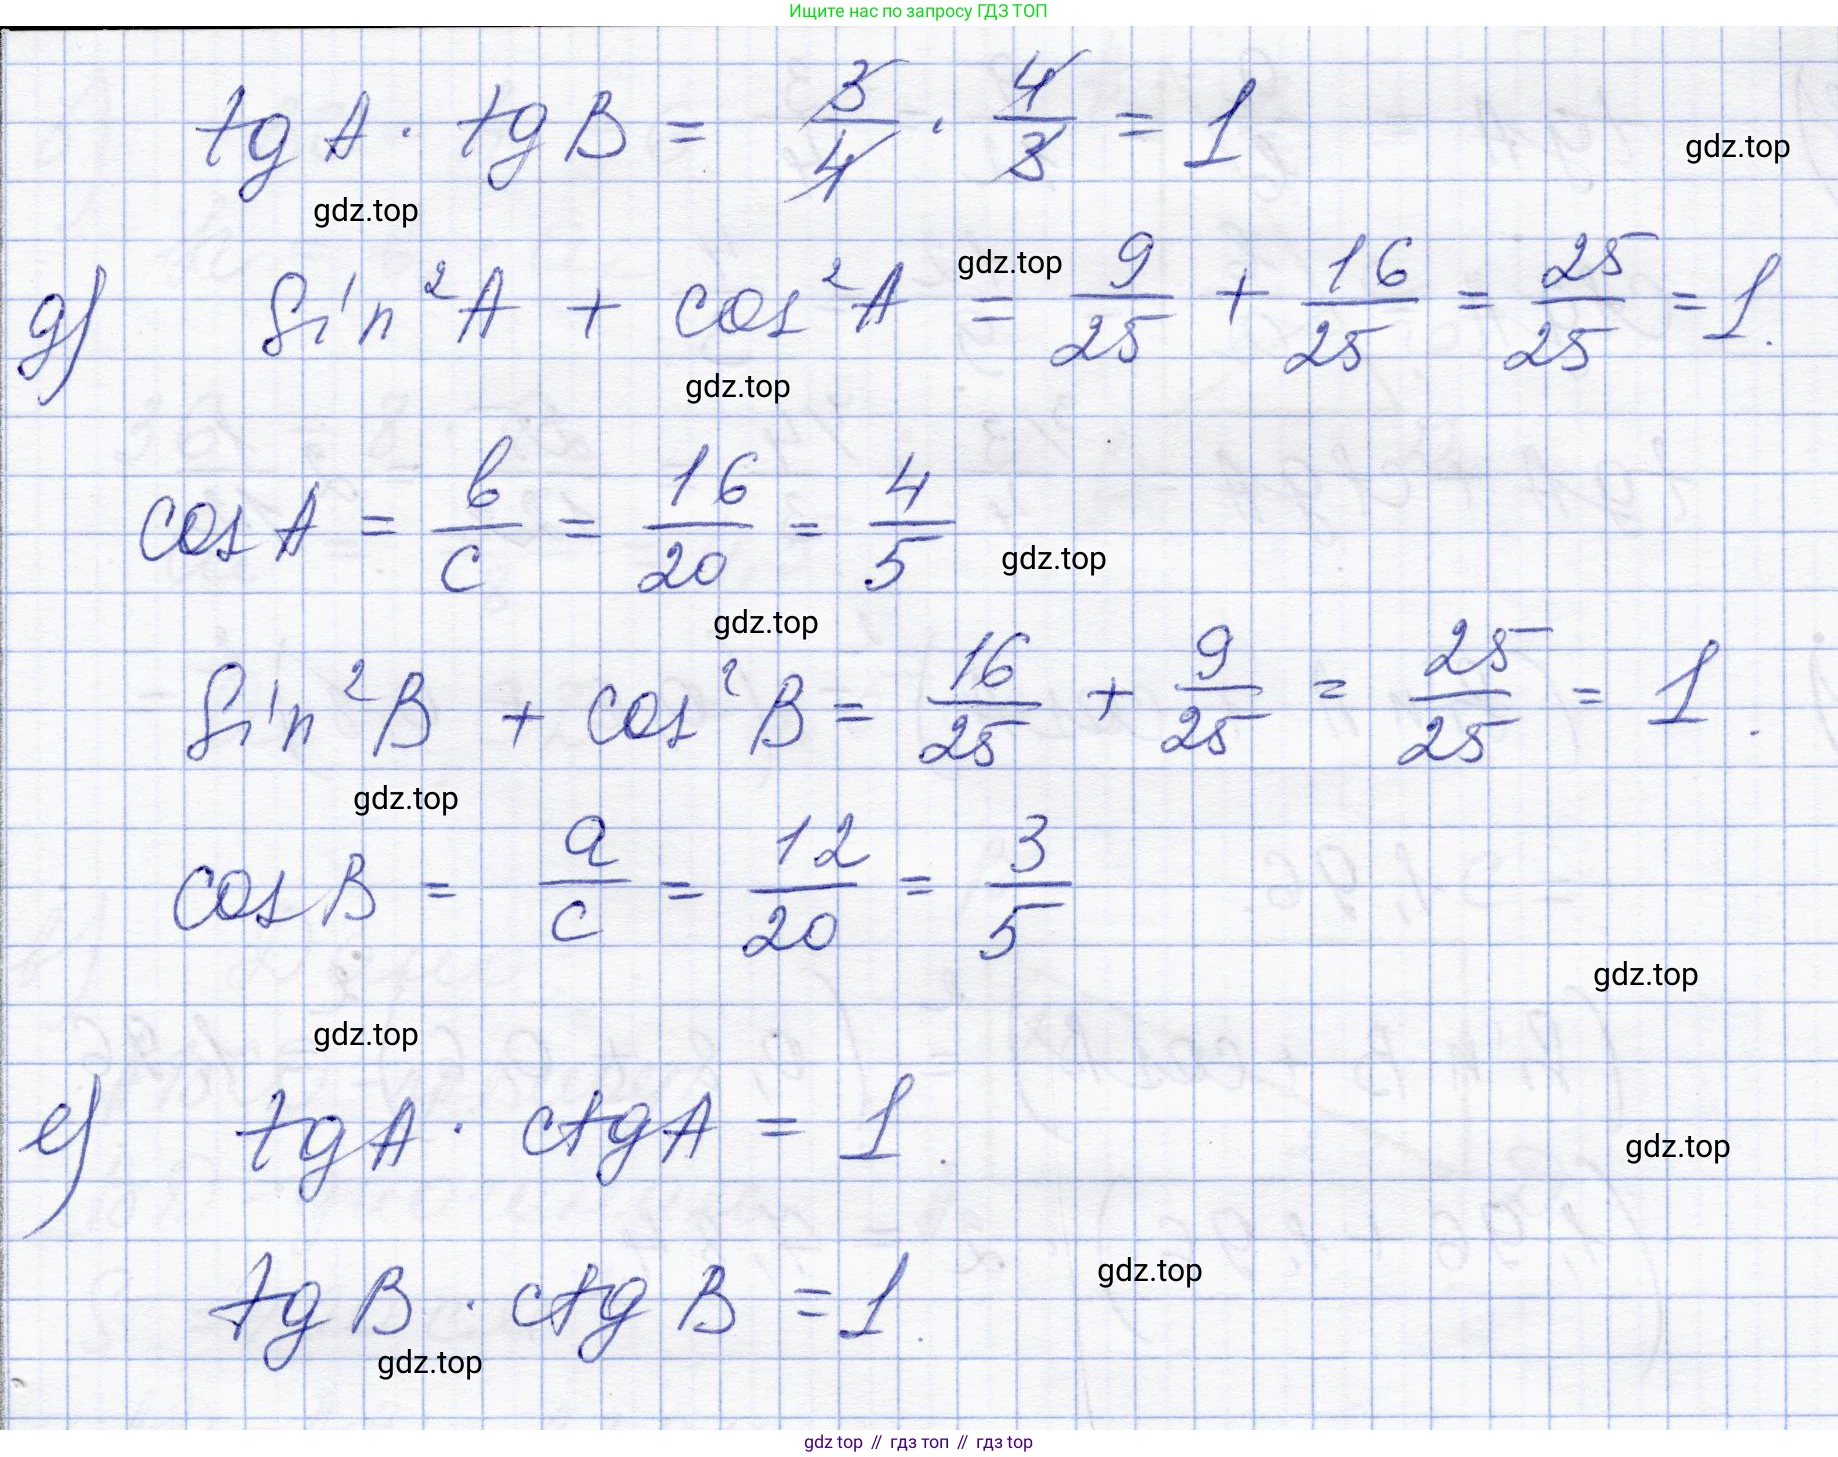 Ищите нас по запросу ГДЗ ТОП
tg A · tg B = 3/4 · 4/3 = 1
gdz.top
gdz.top
д) sin²A + cos²A = 9/25 + 16/25 = 25/25 = 1.
gdz.top
gdz.top
cos A = b/c = 16/20 = 4/5
gdz.top
gdz.top
sin²B + cos²B = 16/25 + 9/25 = 25/25 = 1.
gdz.top
cos B = a/c = 12/20 = 3/5
gdz.top
gdz.top
е) tg A · ctg A = 1.
gdz.top
tg B · ctg B = 1.
gdz.top
gdz.top
gdz top // гдз топ // гдз top